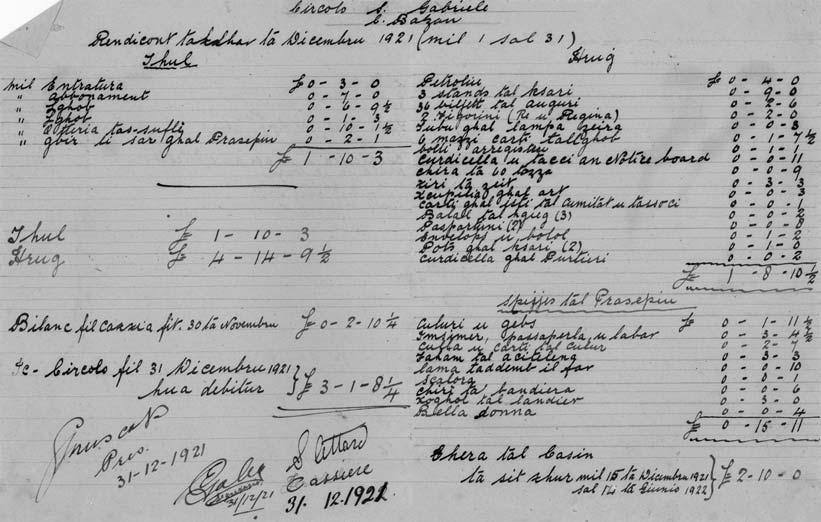 Circolo S. Gabriele
C. Bazan
Rendicont takdhar ta Dicembru 1921 (mil 1 sal 31)
Thul
mil Entratura £ 0 - 3 - 0
" Abbonament 0 - 7 - 0
" Zghob 0 - 6 - 9½
" Zghob 0 - 1 - 3
" Otteria tas-sufli 0 - 10 - 1½
" gbir li sar ghal Prasepiu 0 - 2 - 1
£ 1 - 10 - 3
Thul £ 1 - 10 - 3
Hrug £ 4 - 14 - 9½
Bilanc fil caxxia fit. 30 ta Novembru £ 0 - 2 - 10¼
Ic - Circolo fil 31 Dicembru 1921
hua debitur } £ 3 - 1 - 8¼
Pres.
31-12-1921
31/12/21
S. Attard
Cassiere
31.12.1921
Hrug
Petroliu £ 0 - 4 - 0
3 stands tal ksari 0 - 9 - 0
36 biljett tal auguri 0 - 2 - 6
2 Figorini (Re u Regina) 0 - 2 - 0
Tubu ghal lampa zeira 0 - 0 - 3
6 mazzi carti tallghob 0 - 1 - 7½
bolli arregistru 0 - 1 - 7
Curdicella u tacci an Notice board 0 - 0 - 11
chira ta 60 bozza 0 - 0 - 9
Xiri ta zeit 0 - 3 - 3
Xcupilia ghal art 0 - 0 - 3
Carti ghal isti tal Cumitat u tassoci 0 - 0 - 1
Balal tal hgieg (3) 0 - 0 - 2
Paspartuni (2) 0 - 0 - 8
Envelops u bolol 0 - 1 - 2
Pots ghal ksari (2) 0 - 1 - 0
Curdicella ghal Purtieri 0 - 0 - 2
£ 1 - 8 - 10½
Spijjes tal Prasepiu
Culuri u gebs £ 0 - 1 - 11½
Imzimer, passaperla, u labar 0 - 3 - 4½
Culla u carti tal culur 0 - 2 - 7
Faham tal aciteleng 0 - 3 - 3
lama taddemb il far 0 - 0 - 10
Scalora 0 - 0 - 1
Chiri ta bandiera 0 - 0 - 6
Xoghol tal landier 0 - 3 - 0
Bella donna 0 - 0 - 4
£ 0 - 15 - 11
Chera tal Casin
ta sit xhur mil 15 ta Dicembru 1921
sal 14 ta Giunio 1922 } £ 2 - 10 - 0